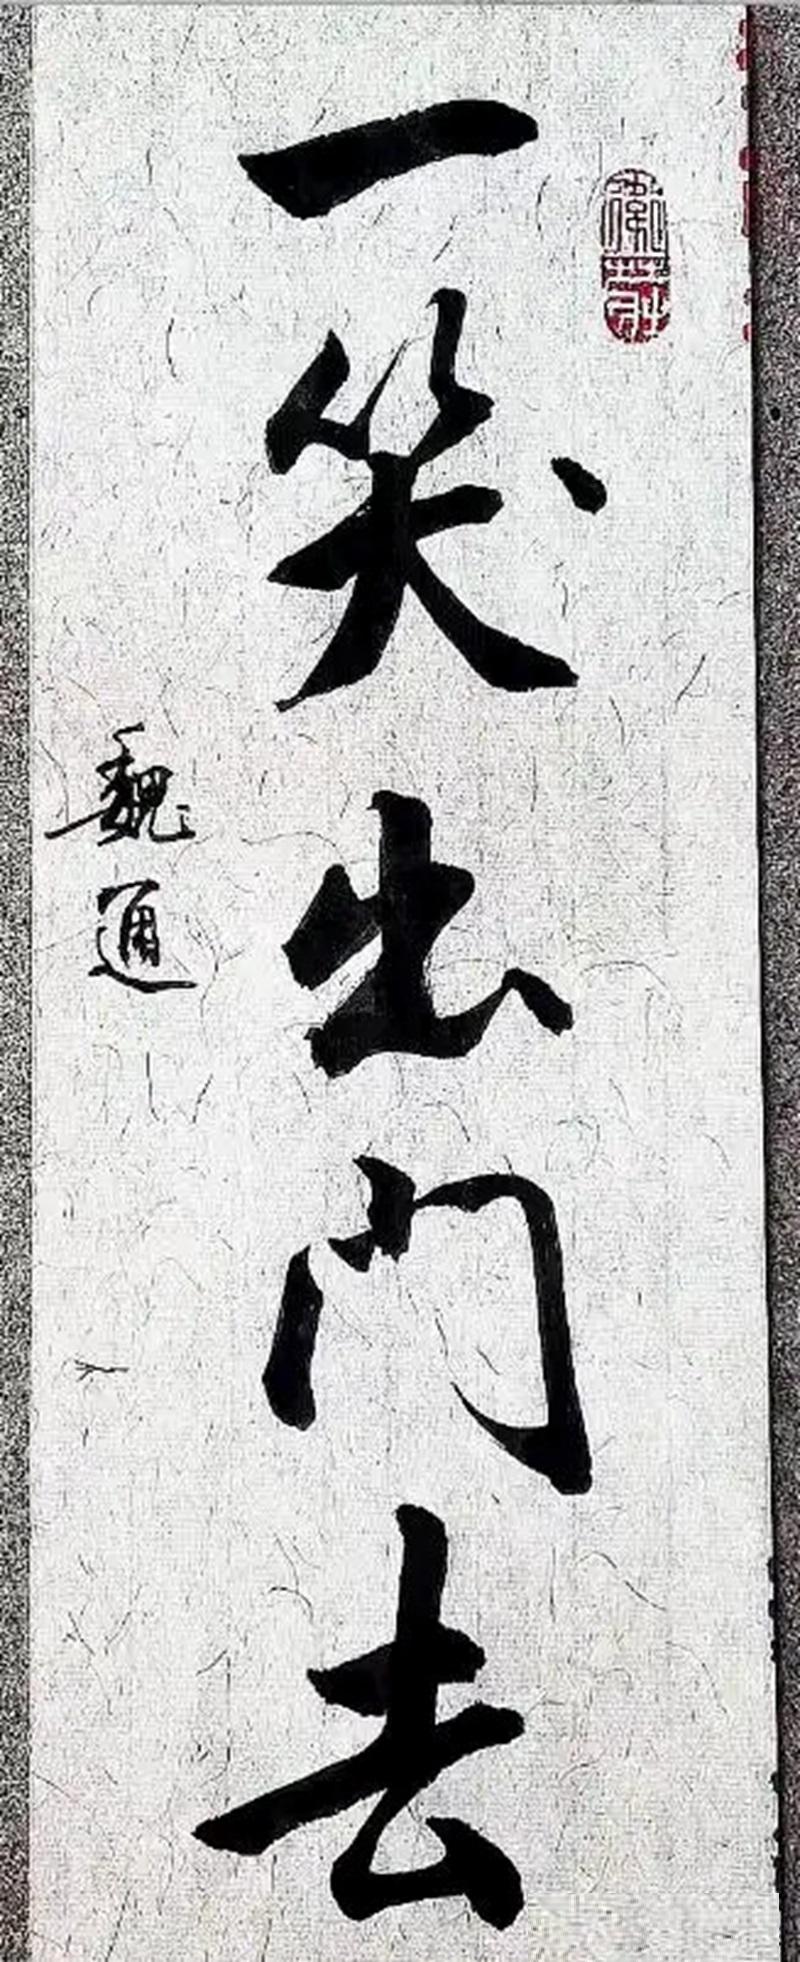 一笑出门去
魏通